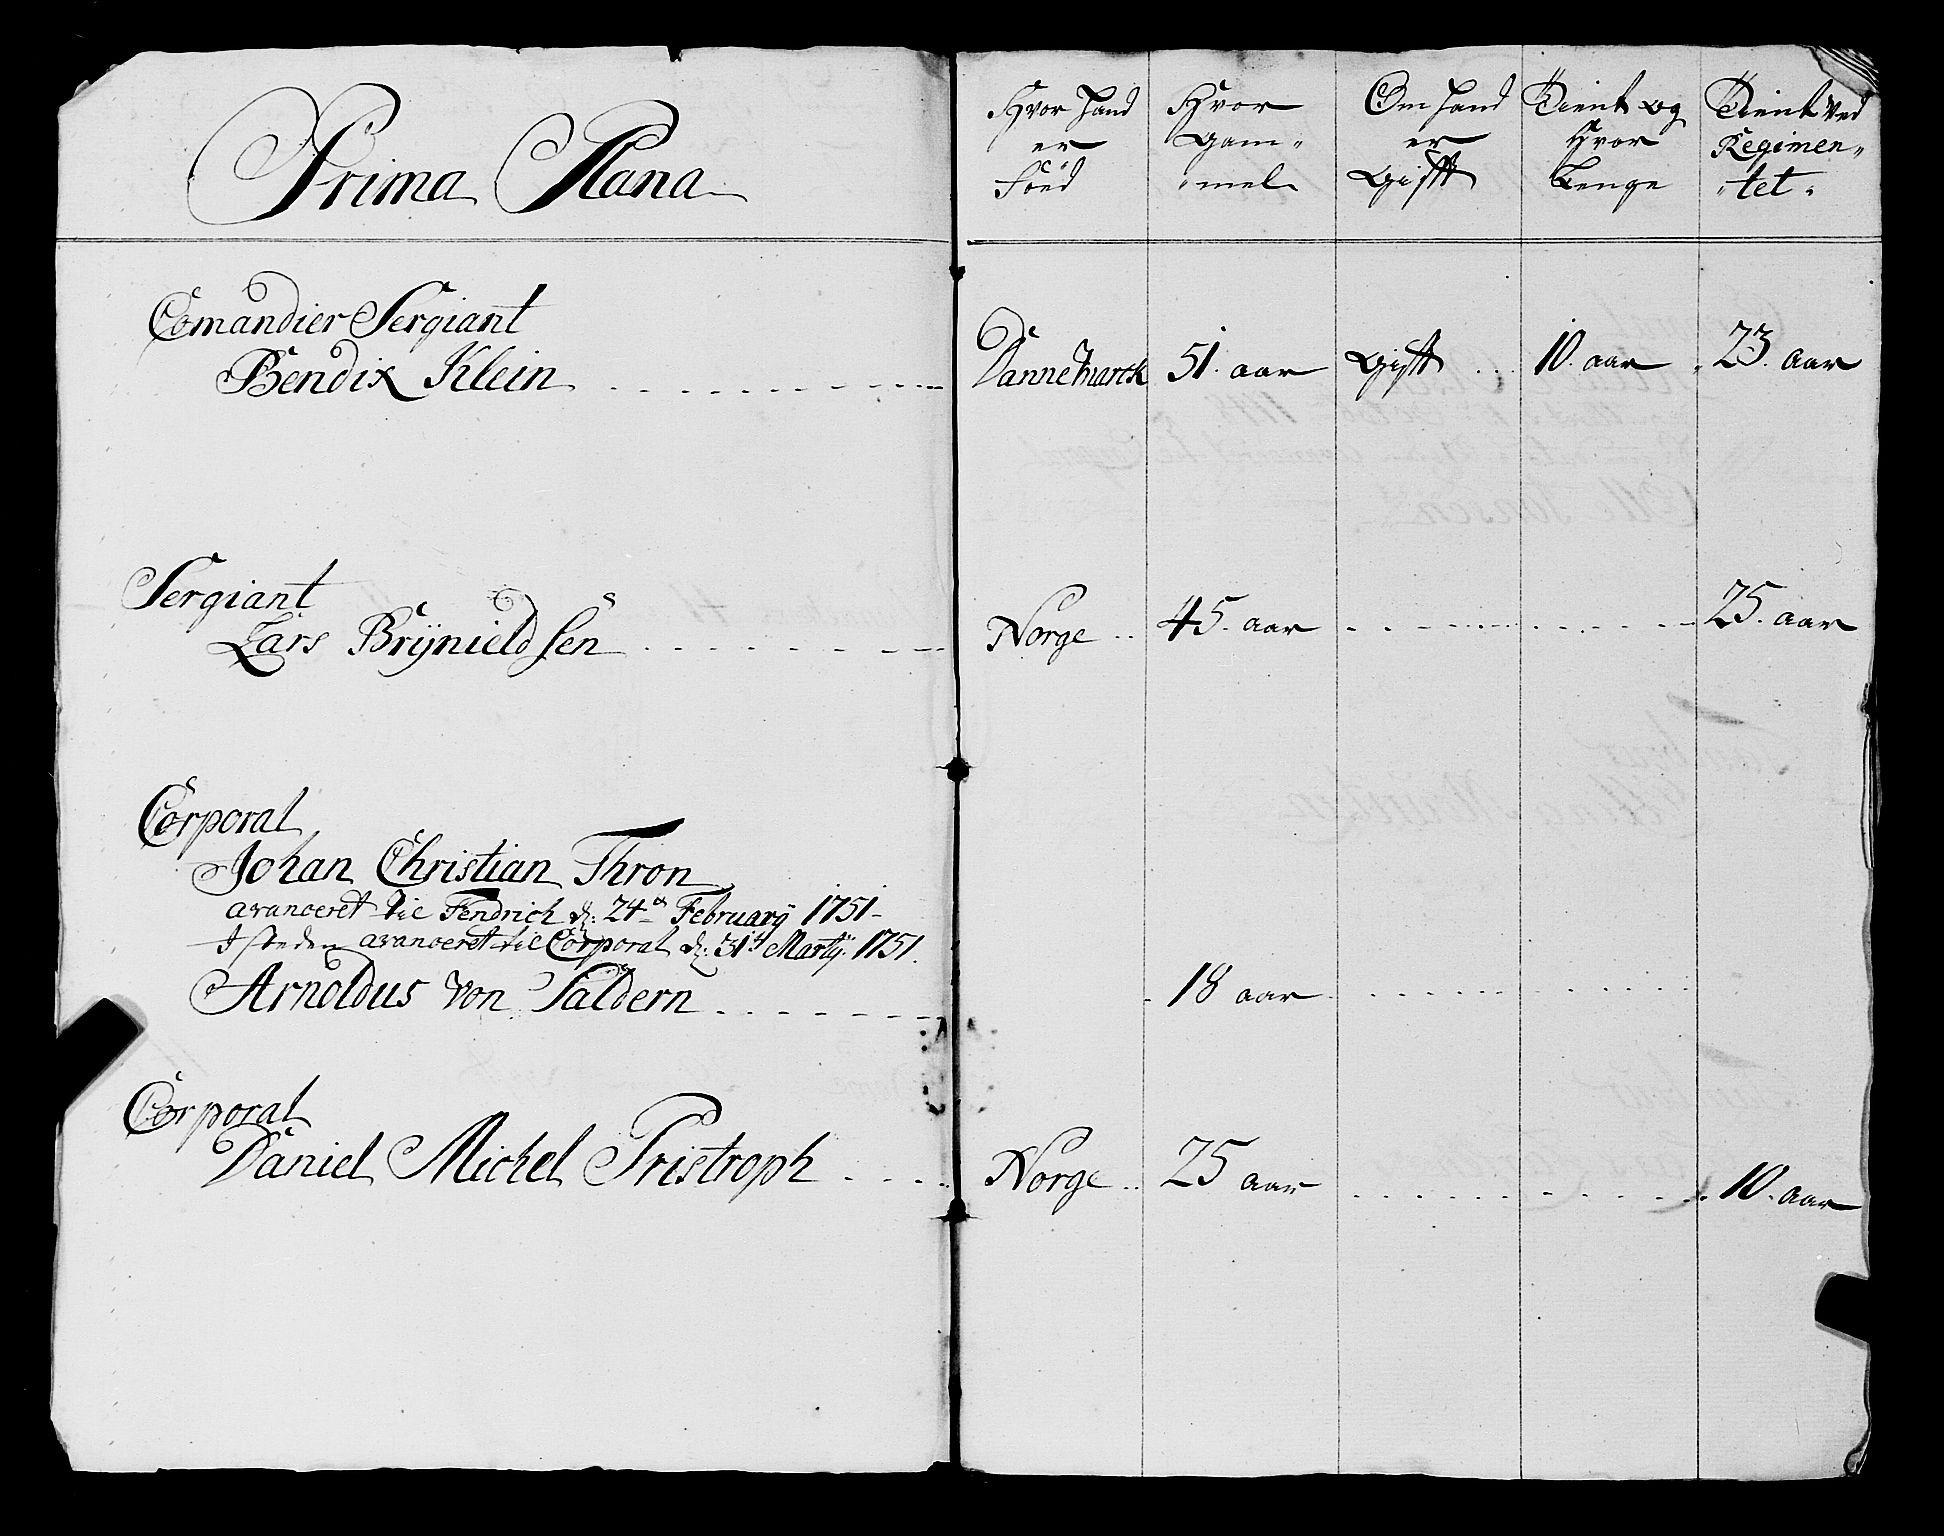 Prima Plana
Hvor hand er Föed
Hvor Gam„ „mel
Om hand er Gifft
Tient og Hvor Lenge
Tient ved Regimen„ „tet
Comandier Sergiant
Bendix Klein Dannemarck 51. aar Gifft 10. aar 23. aar
Sergiant
Lars Brÿnield sen Norge 45. aar 25. aar
Corporal
Johan Christian Thron
avanceret til Fendrich d: 24de Februarÿ 1751
I steden avanceret til Corporal d: 31te Martÿ 1751.
Arnoldus von Saldern 18 aar
Corporal
Daniel Michel Pristroph Norge 25 aar 10. aar